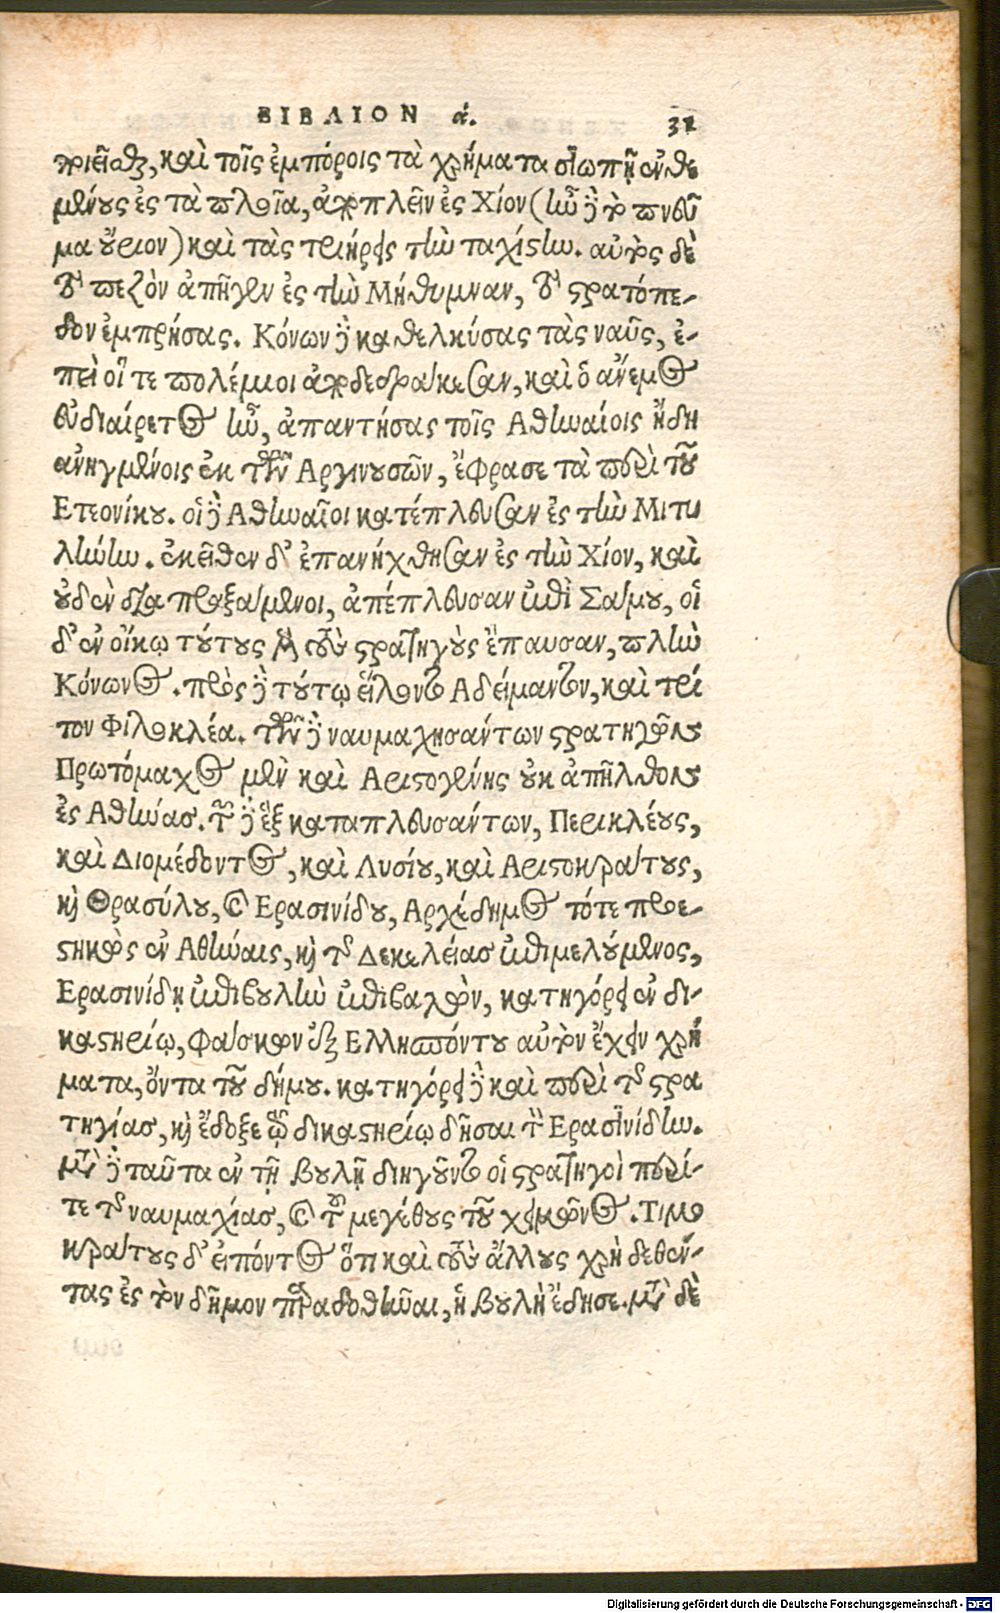 ΒΙΒΛΙΟΝ ά. 31
πριεῖσθαι, καὶ τοῖς ἐμπόροις τὰ χρήματα σιωπῇ ἐνθε
μένους ἐς τὰ πλοῖα, ἀποπλεῖν ἐς Χίον (ἦν δὲ τὸ πνεῦ
μα οὔριον) καὶ τὰς τριήρεις τὴν ταχίστην. αὐτὸς δὲ
τὸ πεζὸν ἀπῆγεν ἐς τὴν Μήθυμναν, τὸ στρατόπε-
δον ἐμπρήσας. Κόνων δὲ καθελκύσας τὰς ναῦς, ἐ-
πεὶ οἵ τε πολέμιοι ἀποδεδράκεσαν, καὶ ὁ ἄνεμος
εὐδιαίρετος ἦν, ἀπαντήσας τοῖς Αθηναίοις ἤδη
ἀνηγμένοις ἐκ τῶν Αργινουσῶν, ἔφρασε τὰ περὶ τοῦ
Ετεονίκου. οἱ δὲ Αθηναῖοι κατέπλευσαν ἐς τὴν Μιτυ
λήνην. ἐκεῖθεν δ' ἐπανήχθησαν ἐς τὴν Χίον, καὶ
οὐδὲν διαπραξάμενοι, ἀπέπλευσαν ἐπὶ Σάμου, οἱ
δ' ἐν οἴκῳ τούτους μὲν τοὺς στρατηγοὺς ἔπαυσαν, πλὴν
Κόνωνος. πρὸς δὲ τούτῳ εἵλοντο Αδείμαντον, καὶ τρί
τον Φιλοκλέα. τῶν δὲ ναυμαχησάντων στρατηγῶν
Πρωτόμαχος μὲν καὶ Αριστογένης οὐκ ἀπῆλθον
ἐς Αθήνας. τῶν δὲ ἓξ καταπλευσάντων, Περικλέους,
καὶ Διομέδοντος, καὶ Λυσίου, καὶ Αριστοκράτους,
καὶ Θρασύλου, καὶ Ερασινίδου, Αρχέδημος τότε προε-
στηκὼς ἐν Αθήναις, καὶ τῆς Δεκελείας ἐπιμελούμενος,
Ερασινίδῃ ἐπιβουλὴν ἐπιβαλὼν, κατηγόρει ἐν δι-
καστηρίῳ, φάσκων ἐξ Ελλησπόντου αὐτὸν ἔχειν χρή
ματα, ὄντα τοῦ δήμου. κατηγόρει δὲ καὶ περὶ τῆς στρα
τηγίας, καὶ ἔδοξε τῷ δικαστηρίῳ δῆσαι τὸν Ερασινίδην.
μετὰ δὲ ταῦτα ἐν τῇ βουλῇ διηγοῦντο οἱ στρατηγοὶ περί-
τε τῆς ναυμαχίας, καὶ τοῦ μεγέθους τοῦ χειμῶνος. Τιμο
κράτους δ' εἰπόντος ὅτι καὶ τοὺς ἄλλους χρὴ δεθέν-
τας ἐς τὸν δῆμον παραδοθῆναι, ἡ βουλὴ ἔδησε. μετὰ δὲ